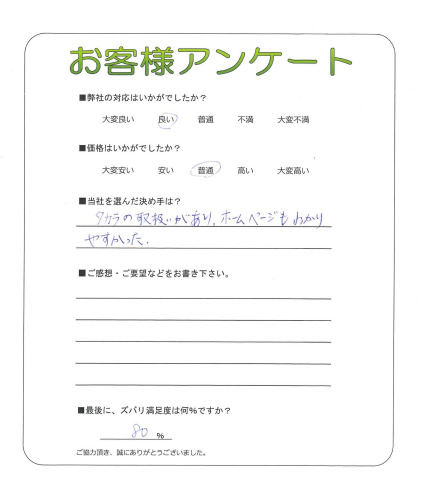 お客様アンケート
■弊社の対応はいかがでしたか？
大変良い 良い 普通 不満 大変不満
■価格はいかがでしたか？
大変安い 安い 普通 高い 大変高い
■当社を選んだ決め手は？
タカラの取扱いがあり、ホームページもわかり
やすかった.
■ご感想・ご要望などをお書き下さい。
■最後に、ズバリ満足度は何%ですか？
80 %
ご協力頂き、誠にありがとうございました。